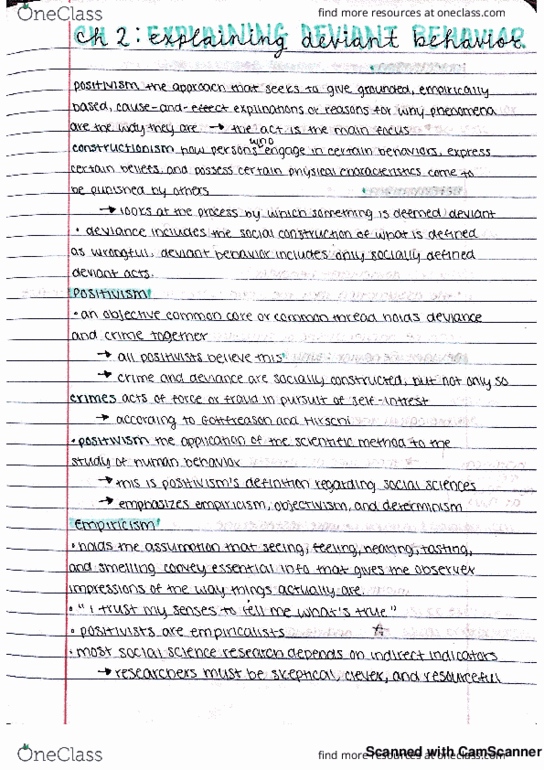 OneClass
find more resources at oneclass.com
Ch 2: explaining deviant behavior.
positivism the approach that seeks to give grounded, empirically
based, cause-and-effect explinations or reasons for why phenomena
are the way they are → the act is the main focus
who
constructionism how persons engage in certain behaviors, express
certain beliefs, and possess certain physical characteristics come to
be punished by others
→ looks at the process by which something is deemed deviant
• deviance includes the social construction of what is defined
as wrongful, deviant behavior includes only socially defined
deviant acts.
Positivism
• an objective common core or common thread holds deviance
and crime together
→ all positivists believe this
→ crime and deviance are socially constructed, but not only so
crimes acts of force or fraud in pursuit of self-intrest
→ according to Gottfreason and Hirschi
• positivism the application of the scientific method to the
study of human behavior
→ this is positivism's definition regarding social sciences
→ emphasizes empiricism, objectivism, and determinism
Empiricism
• holds the assumption that seeing, feeling, hearing, tasting,
and smelling convey essential info that gives the observer
impressions of the way things actually are.
• "I trust my senses to tell me what's true"
• positivists are empiricalists
• most social science research depends on indirect indicators
→ researchers must be skeptical, clever, and resourceful
OneClass
find more resources at oneclass.com
Scanned with CamScanner